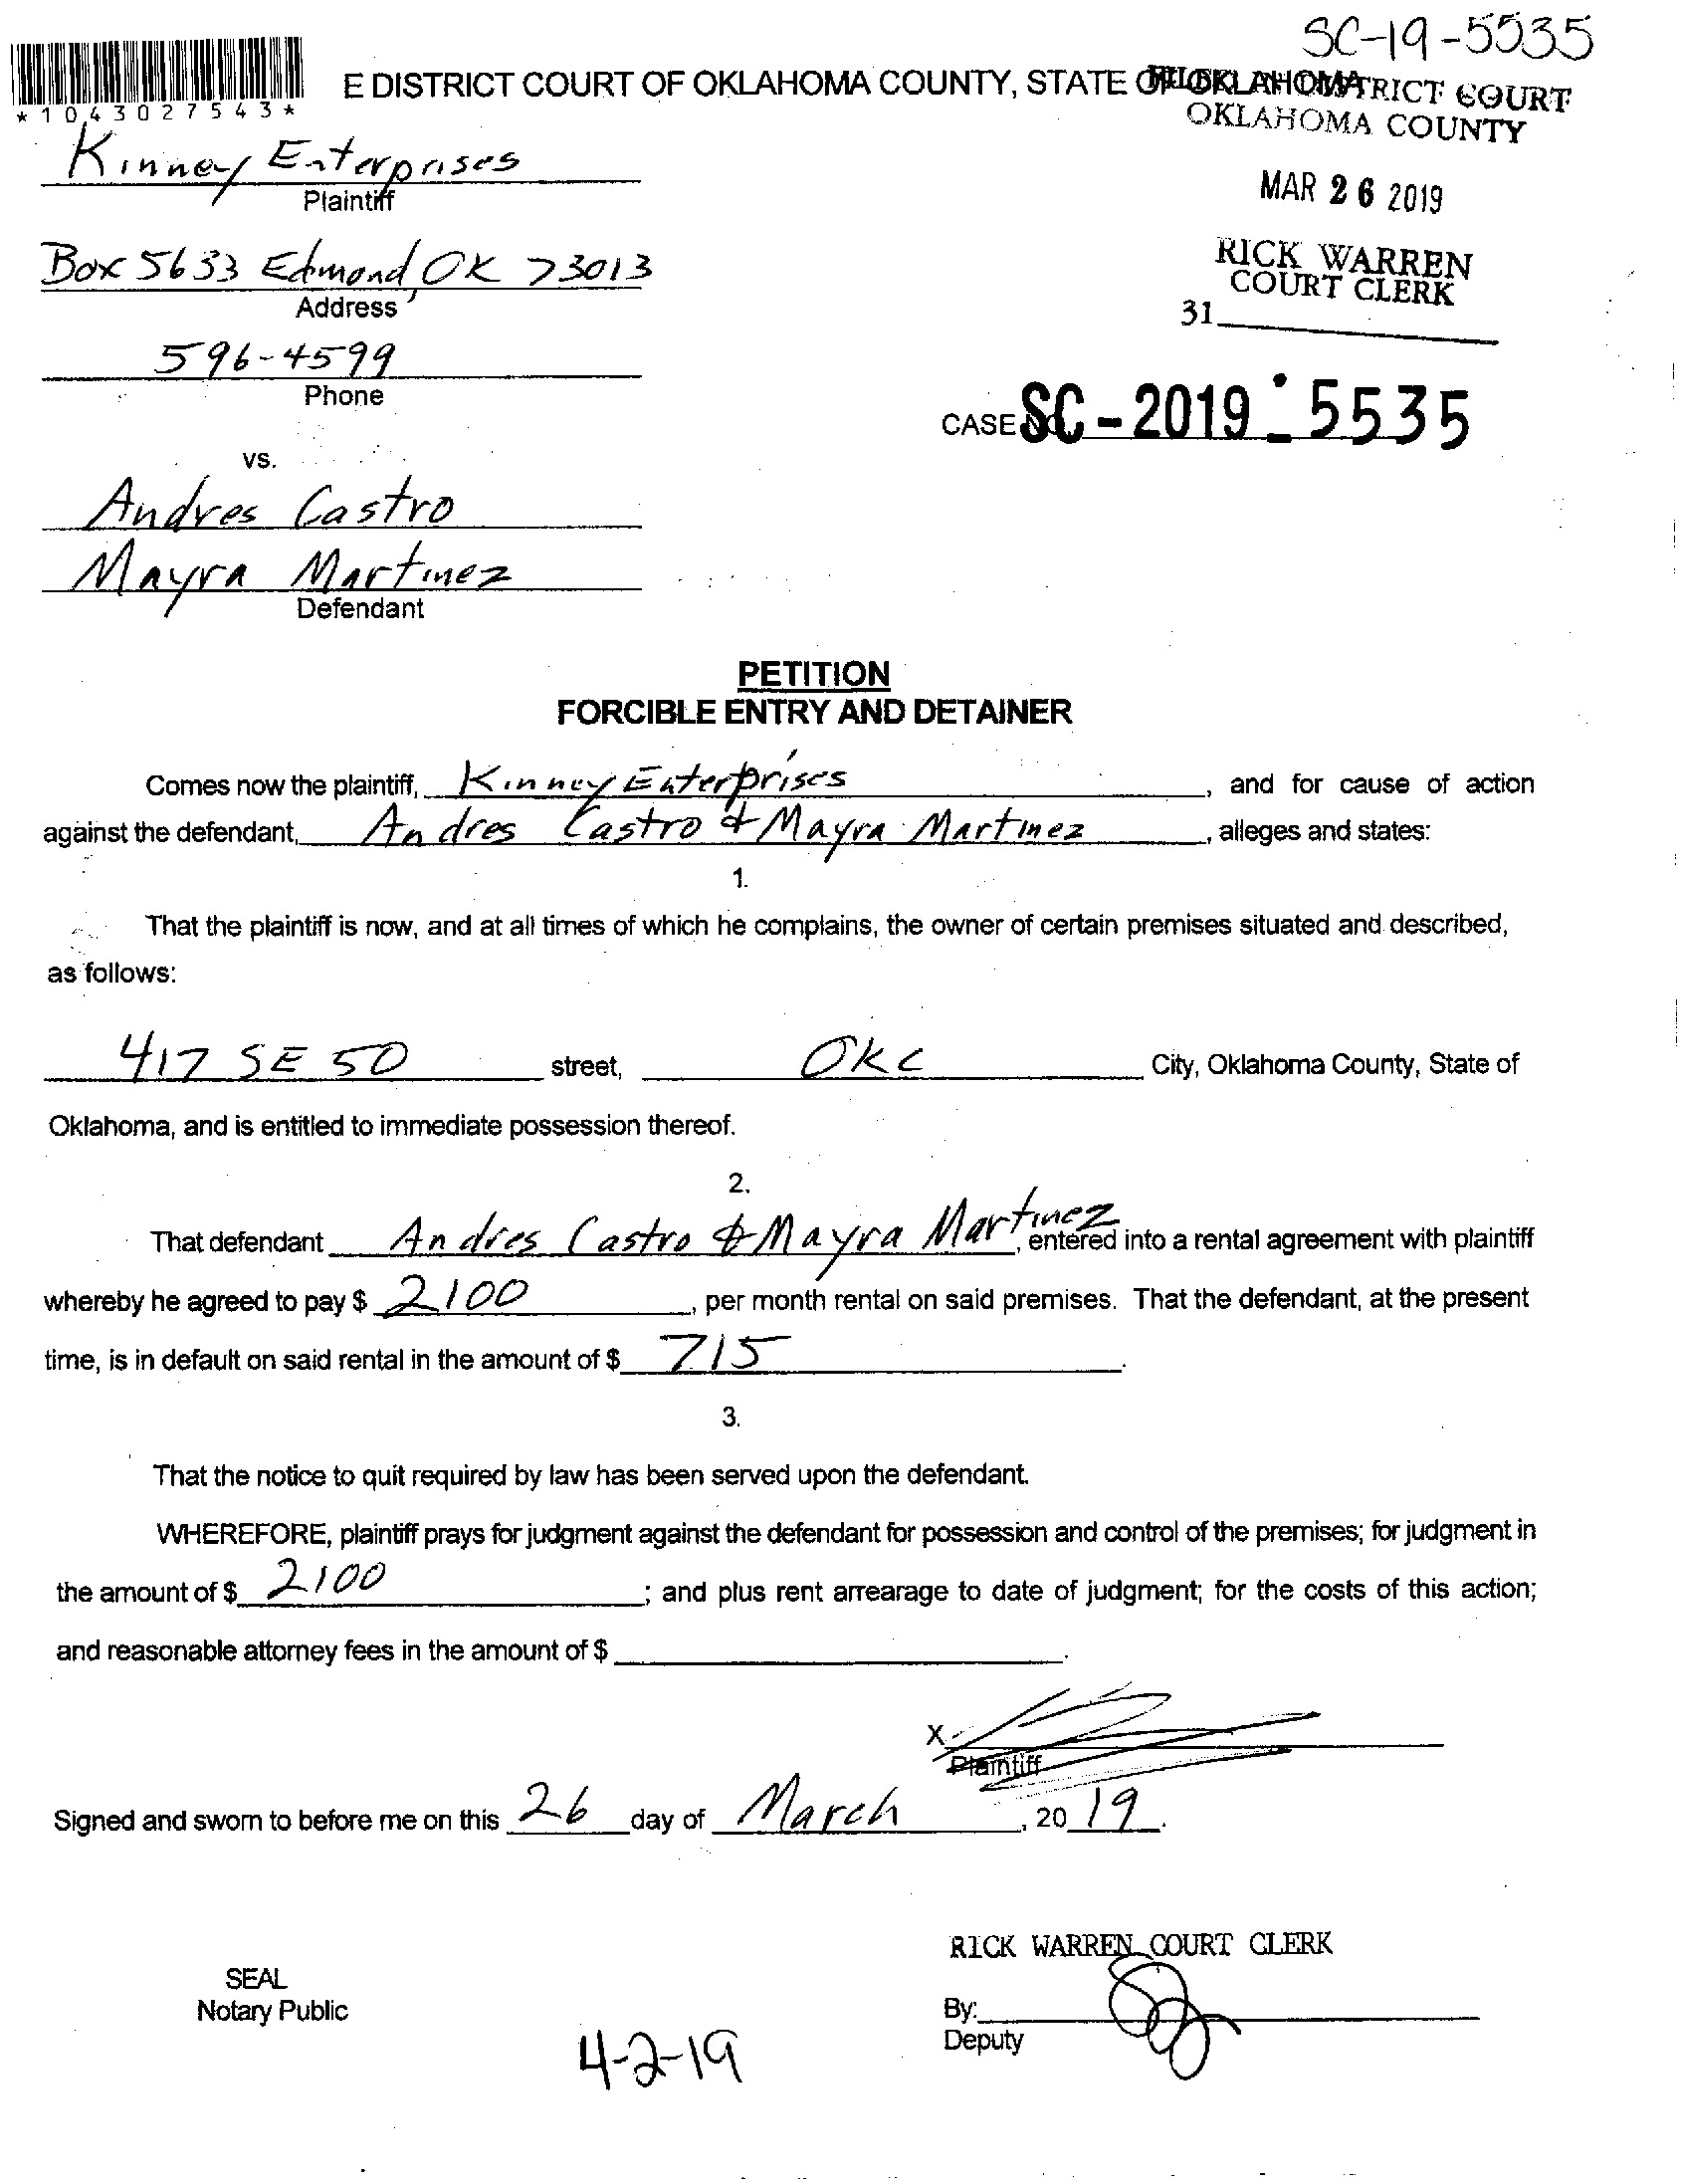 SC-19-5535
E DISTRICT COURT OF OKLAHOMA COUNTY, STATE OF OKLAHOMA
FILED IN DISTRICT COURT
OKLAHOMA COUNTY
*1043027543*
Kinney Enterprises
Plaintiff
MAR 26 2019
Box 5633 Edmond, OK 73013
Address
RICK WARREN
COURT CLERK
31
596-4599
Phone
CASE NO. SC-2019-5535
vs.
Andres Castro
Mayra Martinez
Defendant
PETITION
FORCIBLE ENTRY AND DETAINER
Comes now the plaintiff, Kinney Enterprises, and for cause of action
against the defendant, Andres Castro & Mayra Martinez, alleges and states:
1.
That the plaintiff is now, and at all times of which he complains, the owner of certain premises situated and described,
as follows:
417 SE 50 street, OKC City, Oklahoma County, State of
Oklahoma, and is entitled to immediate possession thereof.
2.
That defendant Andres Castro & Mayra Martinez, entered into a rental agreement with plaintiff
whereby he agreed to pay $ 2100, per month rental on said premises. That the defendant, at the present
time, is in default on said rental in the amount of $ 715.
3.
That the notice to quit required by law has been served upon the defendant.
WHEREFORE, plaintiff prays for judgment against the defendant for possession and control of the premises; for judgment in
the amount of $ 2100; and plus rent arrearage to date of judgment; for the costs of this action;
and reasonable attorney fees in the amount of $ .
X
Plaintiff
Signed and sworn to before me on this 26 day of March, 20 19.
RICK WARREN COURT CLERK
SEAL
Notary Public
By:
Deputy
4-2-19